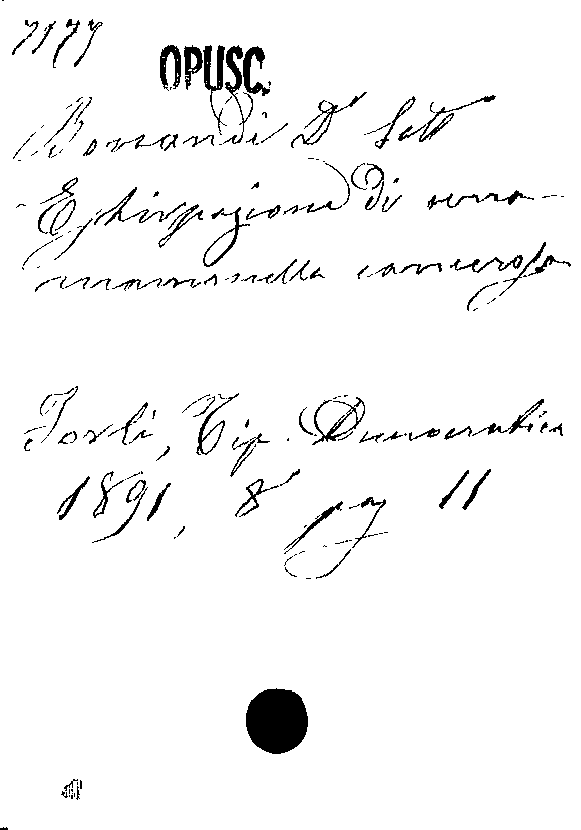 7177
OPUSC.
Bonandi Dr Sett
Esthirpazione di una
mammella cancerosa
Forlì, Tip. Democratica
1891, 8° pag 11